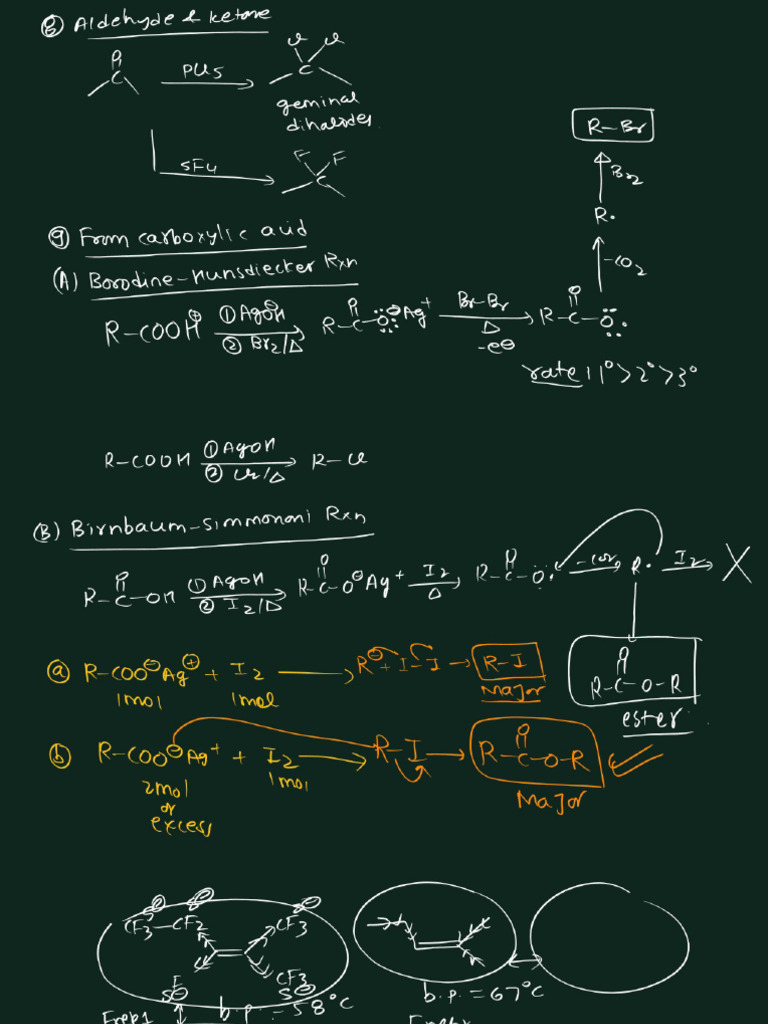 ⑧ Aldehyde & ketone
O
C
PCl5
Cl Cl
C
geminal
dihalides
SF4
F F
C
R-Br
Br2
R•
-CO2
⑨ From carboxylic acid
(A) Borodine-Hunsdiecker Rxn
R-COOH ① AgOH ② Br2/Δ R-C-O⊖Ag+ Br-Br Δ -e⊖ R-C-O•
rate: 1°>2°>3°
R-COOH ① AgOH ② Cl2/Δ R-Cl
(B) Birnbaum-Simmonani Rxn
R-C-OH ① AgOH ② I2/Δ R-C-O⊖Ag+ I2 Δ R-C-O• -CO2 R• I2 X
ⓐ R-COO⊖Ag⊕ + I2 → R⊖ + I-I → R-I
1mol 1mol Major
R-C-O-R
ester
ⓑ R-COO⊖Ag+ + I2 → R-I → R-C-O-R
2mol 1mol
or Major
excess
CF3-CF2 CF3
F CF3
b.p. = 58°C
b.p. = 67°C